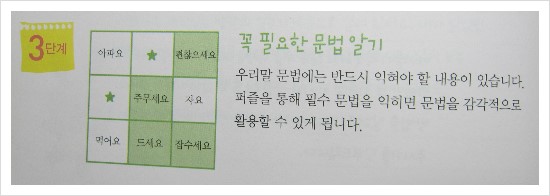 3단계
아파요 ★ 괜찮으세요
★ 주무세요 자요
먹어요 드세요 잡수세요
꼭 필요한 문법 알기
우리말 문법에는 반드시 익혀야 할 내용이 있습니다.
퍼즐을 통해 필수 문법을 익히면 문법을 감각적으로
활용할 수 있게 됩니다.